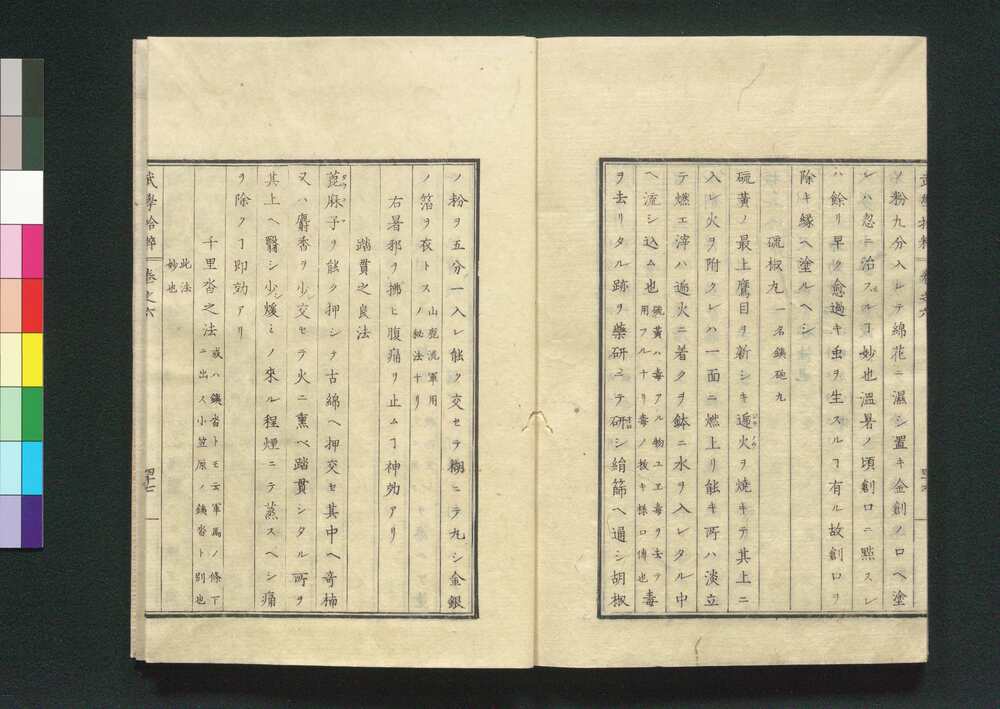 ノ粉九分入レテ綿花ニ濕シ置キ金創ノ口ヘ塗
レハ忽ニ治スルヿ妙也溫暑ノ頃創口ニ黙スレ
ハ餘リ早ク愈過キ虫ヲ生スルヿ有ル故創口ヲ
除キ縁ヘ塗ルヘシ
硫椒丸 一名鐵砲丸
硫黃ノ最上鷹目ヲ新シキ遍火ヲ燒キテ其上ニ
入レ火ヲ附クレハ一面ニ燃上リ能キ所ハ淡立
テ燃エ滓ハ遍火ニ着クヲ鉢ニ水ヲ入レタル中
ヘ流シ込ム也 硫黃ハ毒アル物ユヱ毒ヲ去テ
用フルナリ毒ノ拔キ樣口傳也 毒
ヲ去リタル跡ヲ藥研ニテ研シ絹篩ヘ通シ胡椒
ノ粉ヲ五分一入レ能ク交セテ糊ニテ丸シ金銀
ノ箔ヲ衣トス 山鹿流軍用
ノ秘法ナリ
右暑邪ヲ拂ヒ腹痛リ止ムヿ神効アリ
踏貫之良法
蓖麻子ヲ能ク押シテ古綿ヘ押交セ其中ヘ奇楠
又ハ麝香ヲ少シ交セテ火ニ熏ベ踏貫シタル所ヲ
其上ヘ翳シ少シ煖ミノ來ル程煙ニテ蒸スヘシ痛
ヲ除クヿ即効アリ
千里沓之法 或ハ鐵沓トモ云軍馬ノ條下
ニ出ス小笠原ノ鐵沓ト別也
此法
妙也
武學拾粹 卷之六 四十七